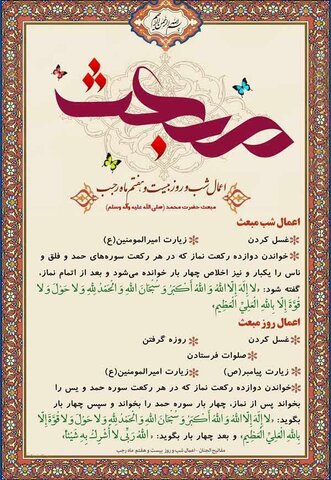 بسم الله الرحمن الرحیم
مبعث
اعمال شب و روز بیست و هفتم ماه رجب
مبعث حضرت محمد (صلی الله علیه وآله وسلم)
اعمال شب مبعث
غسل کردن زیارت امیرالمومنین(ع)
خواندن دوازده رکعت نماز که در هر رکعت سوره‌های حمد و فلق و
ناس را یکبار و نیز اخلاص چهار بار خوانده می‌شود و بعد از اتمام نماز،
گفته شود: «لا إِلهَ إِلَّا اللهُ وَ اللهُ أَكْبَرُ وَ سُبْحَانَ اللهِ وَ الْحَمْدُ لِلهِ وَ لَا حَوْلَ وَ لَا
قُوَّةَ إِلَّا بِاللهِ الْعَلِيِّ الْعَظِيمِ»
اعمال روز مبعث
غسل کردن روزه گرفتن
صلوات فرستادن
زیارت پیامبر(ص) زیارت امیرالمومنین(ع)
خواندن دوازده رکعت نماز که در هر رکعت سوره حمد و یس را
بخواند پس از نماز، چهار بار سوره حمد را بخواند و سپس چهار بار
بگوید: «لا إِلهَ إِلَّا اللهُ وَ اللهُ أَكْبَرُ وَ سُبْحَانَ اللهِ وَ الْحَمْدُ لِلهِ وَ لَا حَوْلَ وَ لَا قُوَّةَ إِلَّا
بِاللهِ الْعَلِيِّ الْعَظِيمِ» و بعد چهار بار بگوید: «اللهُ رَبِّي لَا أُشْرِكُ بِهِ شَيْئاً»
مفاتیح الجنان - اعمال شب و روز بیست و هفتم ماه رجب